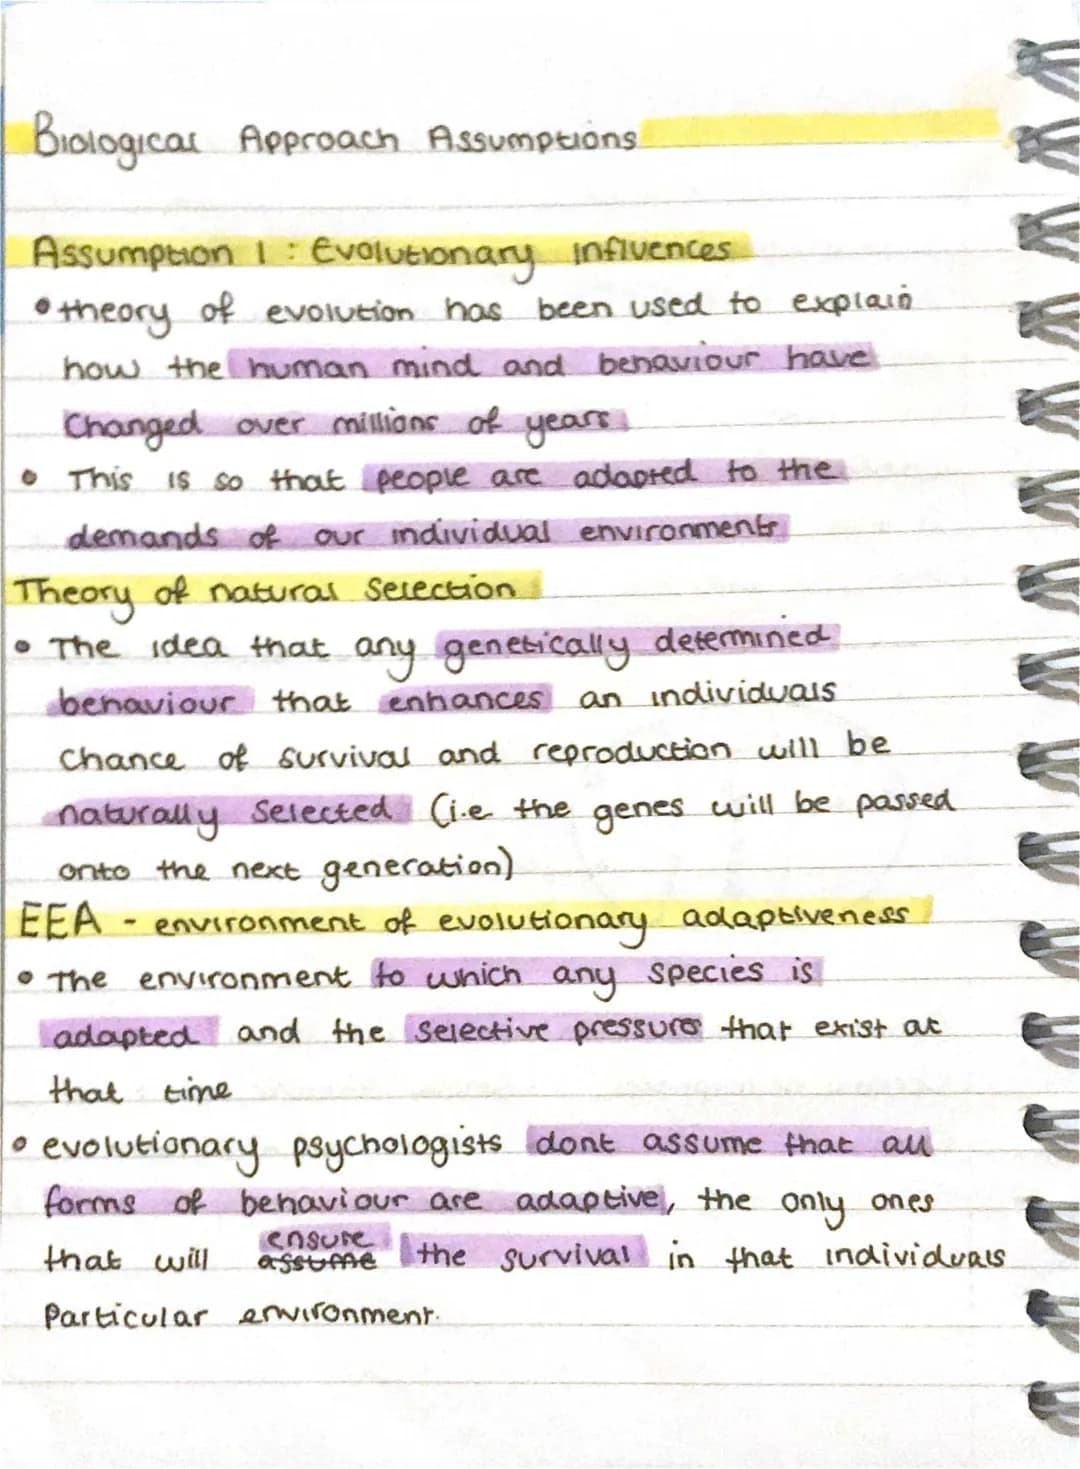 Biological Approach Assumptions
Assumption 1 : Evolutionary Influences
• theory of evolution has been used to explain
how the human mind and behaviour have
Changed over millions of years
• This is so that people are adapted to the
demands of our individual environments
Theory of natural Selection
• The idea that any genetically determined
behaviour that enhances an individuals
Chance of survival and reproduction will be
naturally selected (i.e the genes will be passed
onto the next generation)
EEA - environment of evolutionary adaptiveness
• The environment to which any species is
adapted and the selective pressures that exist at
that time
• evolutionary psychologists dont assume that all
forms of behaviour are adaptive, the only ones
that will ~~assume~~ ensure the survival in that individuals
Particular environment.